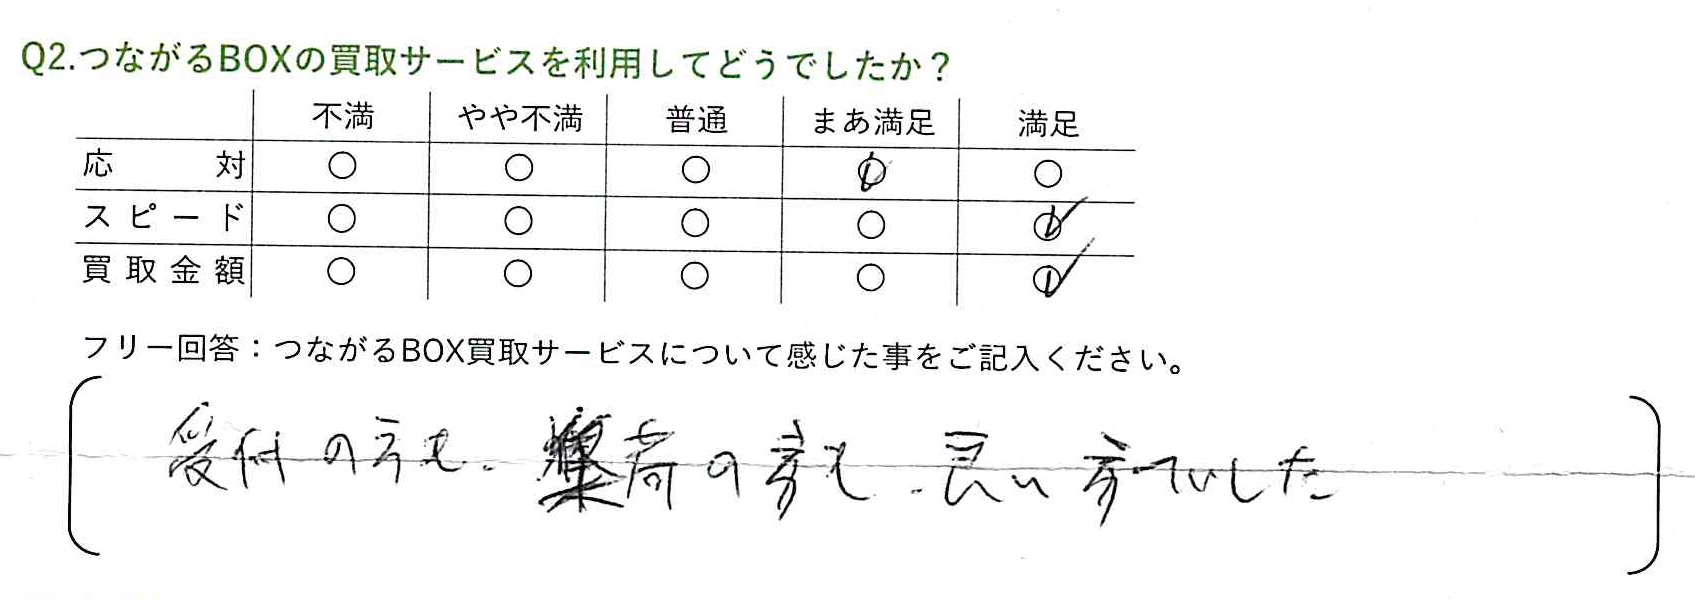 Q2.つながるBOXの買取サービスを利用してどうでしたか？
不満 やや不満 普通 まあ満足 満足
応対 ○ ○ ○ ○ ○
スピード ○ ○ ○ ○ ○
買取金額 ○ ○ ○ ○ ○
フリー回答：つながるBOX買取サービスについて感じた事をご記入ください。
受付の方も、集荷の方も、良い方でした